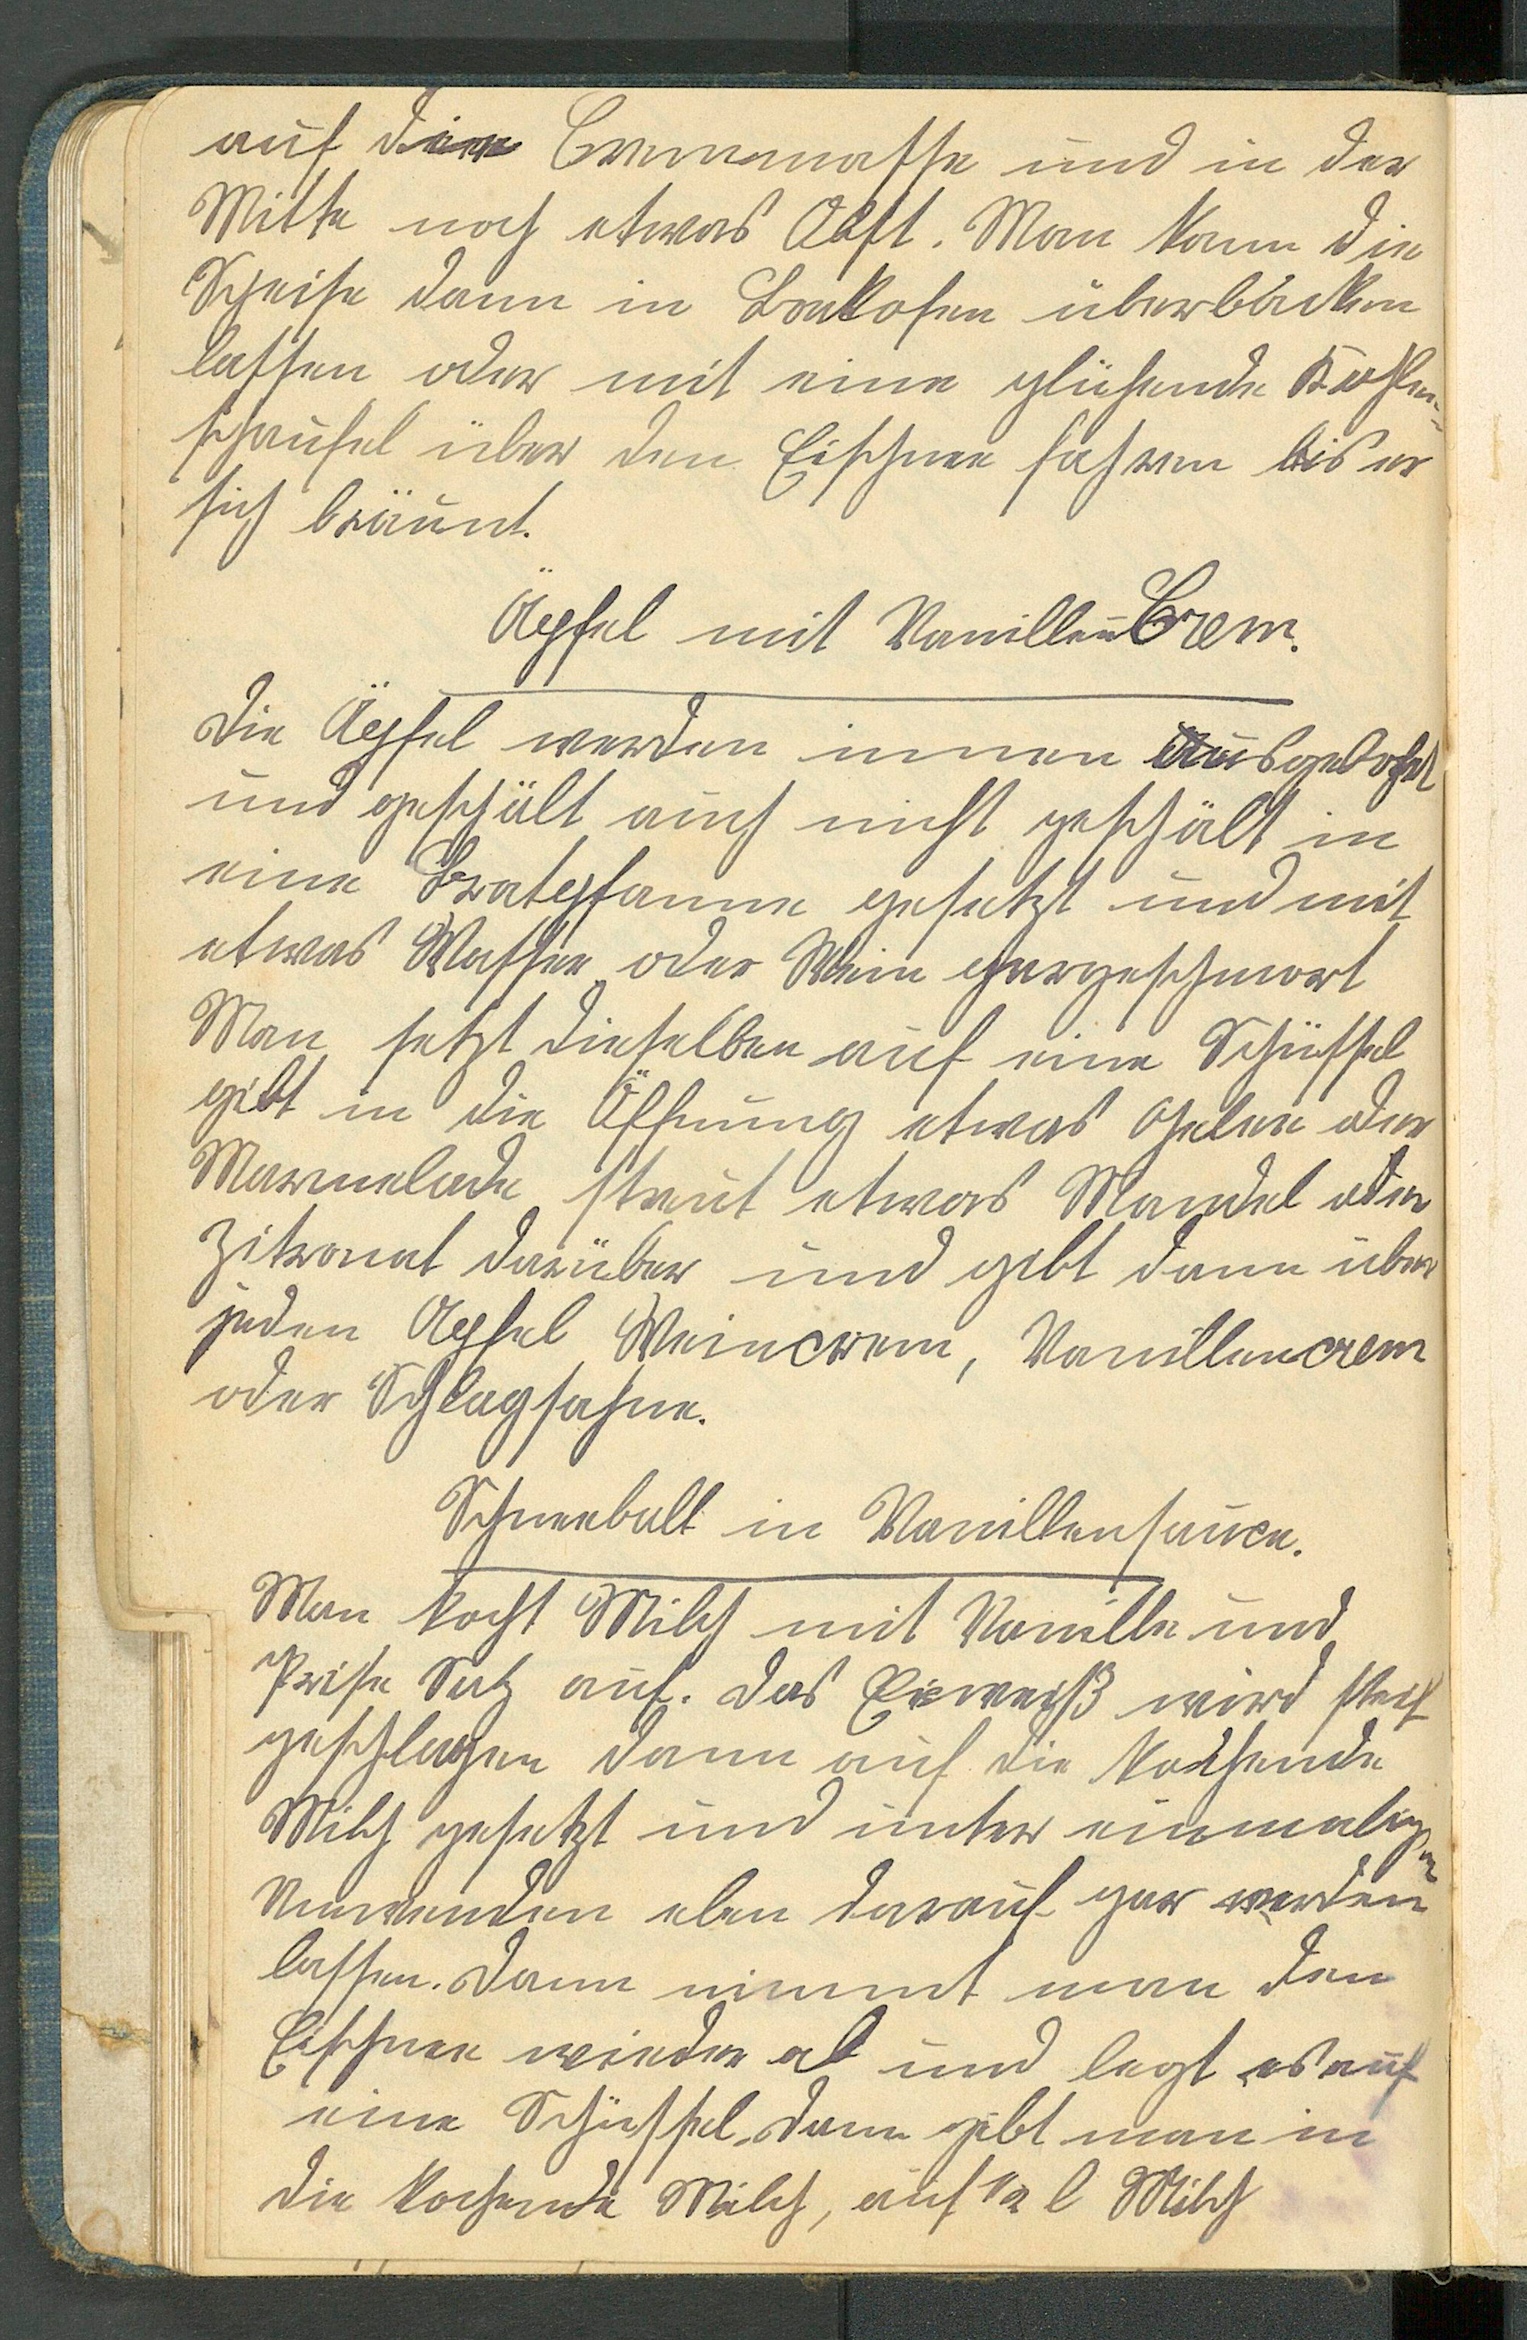 auf die Crememasse und in der
Mitte noch etwas Obst. Man kann die
Speise dann in Backofen überbacken
lassen oder mit eine glühende Kohlen-
schaufel über den Eischnee fahren bis er
sich bräunt.
Äpfel mit Vanillen Crem.
Die Äpfel werden innen ausgebohrt
und geschält auch nicht geschält in
eine Bratpfanne gesetzt und mit
etwas Wasser oder Wein gargeschmort
Man setzt dieselben auf eine Schüssel
gibt in die Öffnung etwas Gelee oder
Marmelade streut etwas Mandel oder
Zitronat darüber und gibt dann über
jeden Apfel Weincrem, Vanillencrem
oder Schlagsahne.
Schneeball in Vanillensauce.
Man kocht Milch mit Vanille und
Prise Salz auf. Das Eiweiß wird steif
geschlagen dann auf die kochende
Milch gesetzt und unter einmaligen
Umwenden eben darauf gar werden
lassen. Dann nimmt man den
Eischnee wieder ab und legt es auf
eine Schüssel. Dann gibt man in
die kochende Milch, auf 1/2 l Milch